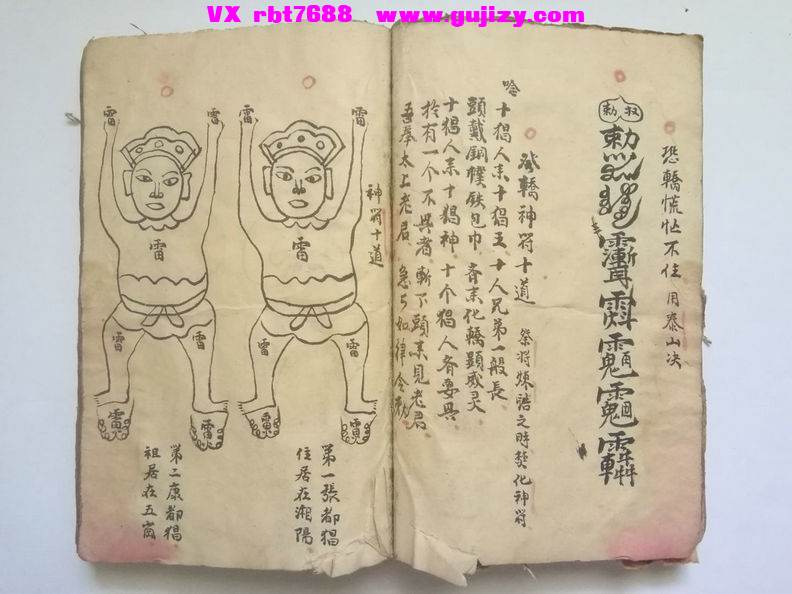 VX rbt7688 www.gujizy.com
恐轎慌忙不住 用泰山决
敕
敕
勅
破轎神符十道 祭将煉誥之時焚化神符
唸
十猖人耒十猖王 十人兄弟一般長
頭戴銅幞鉄包巾 斉耒化轎顕威灵
十猖人耒十猖神 十个猖人斉要具
於有一个不具者 斬下頭耒見老君
吾奉太上老君 急々如律令勅
神符十道
雷
雷
雷
雷
雷
第一張都猖
住居在湘陽
雷
雷
雷
雷
雷
第二康都猖
祖居在五